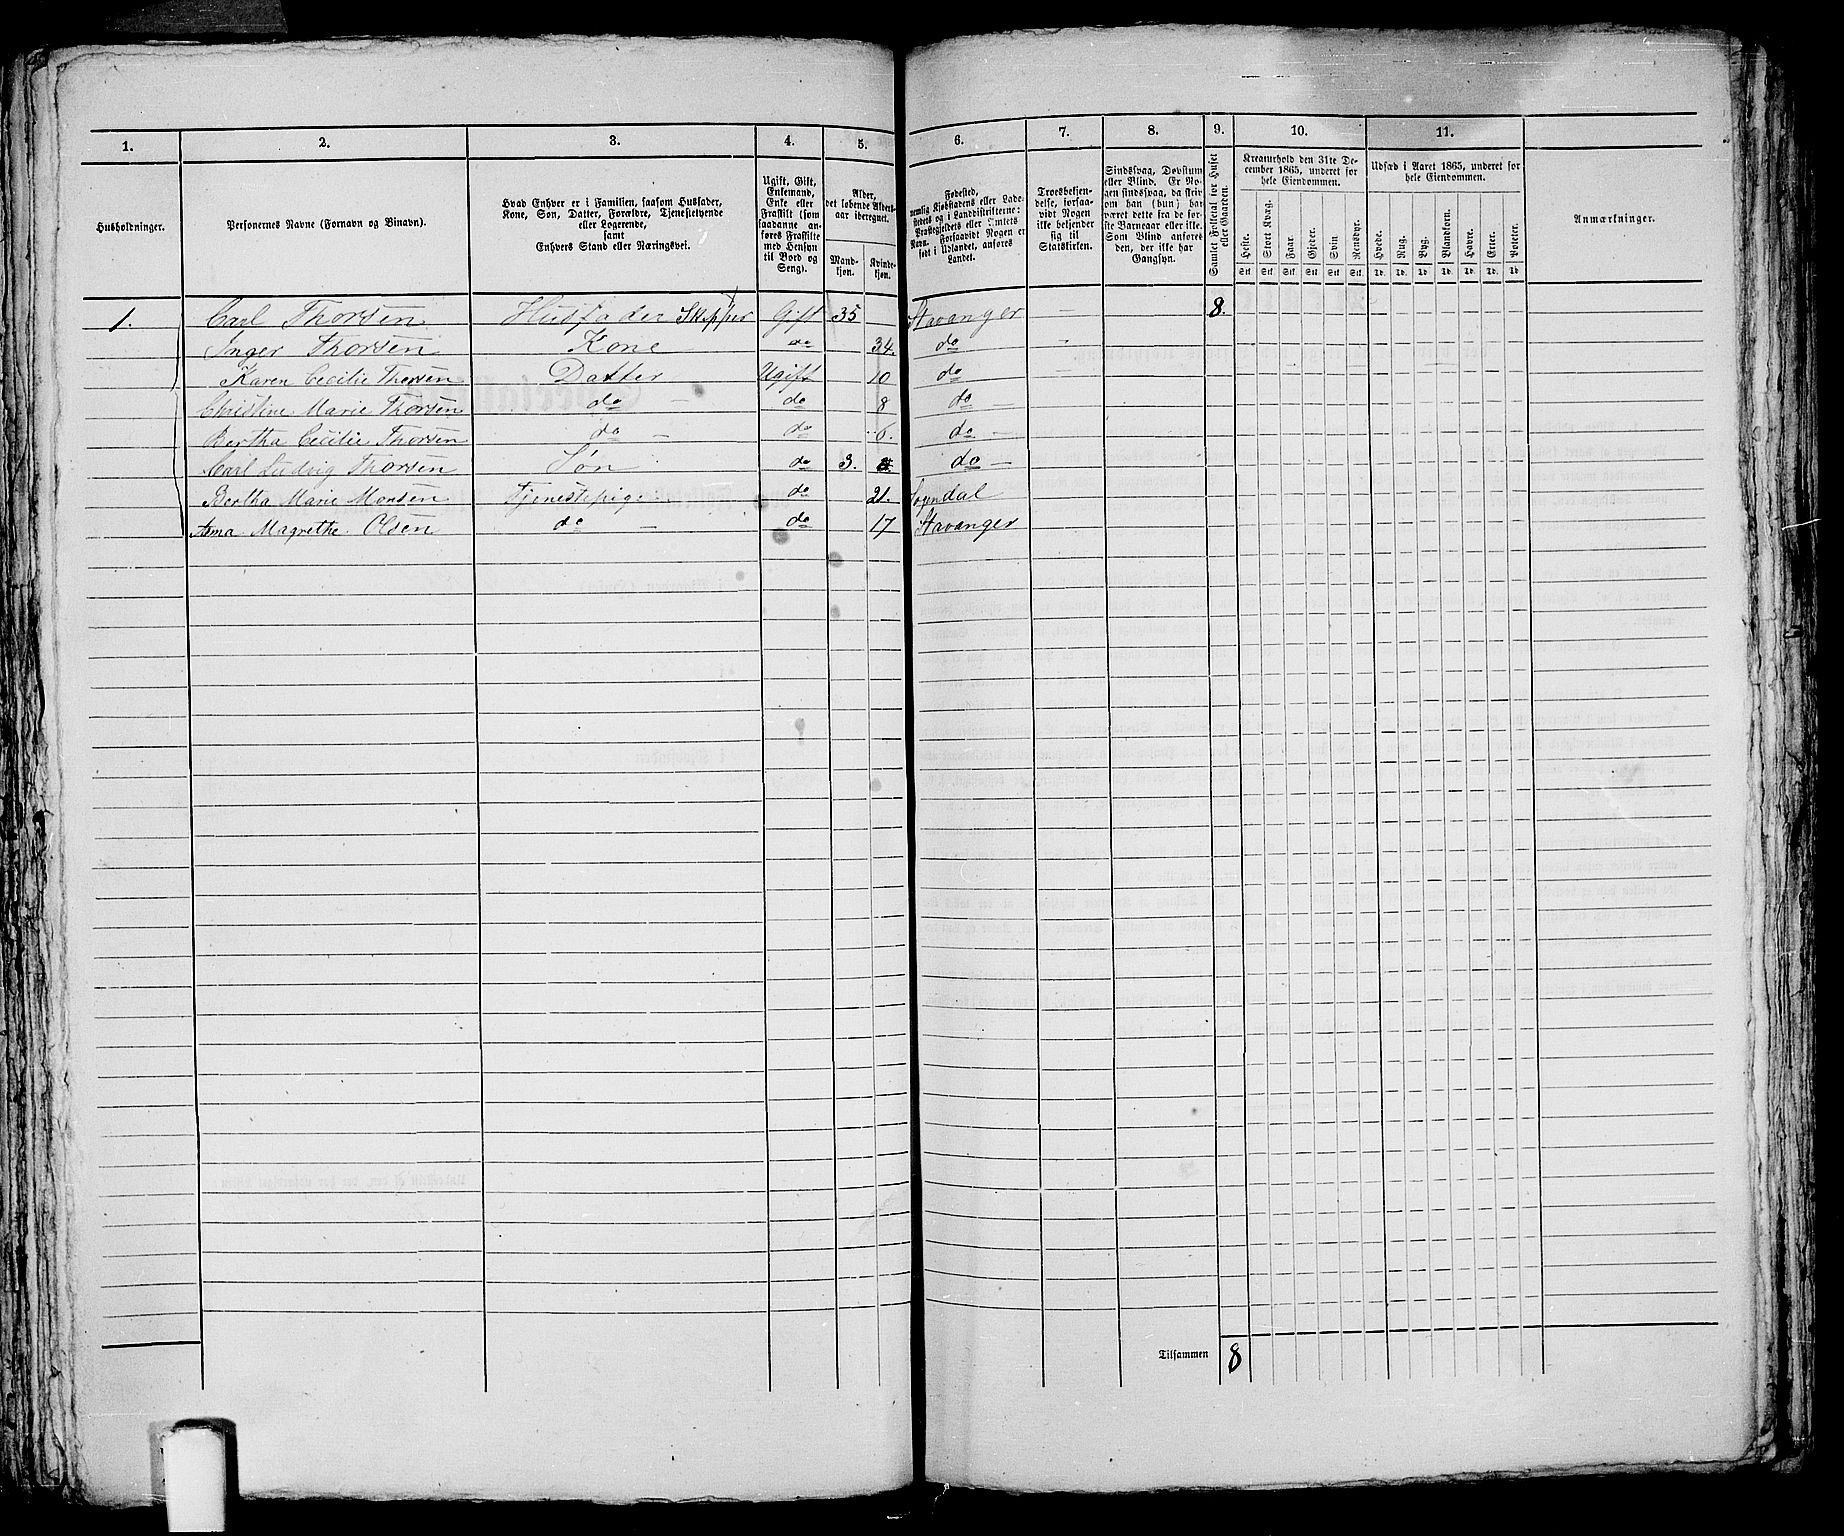 1. 2. 3. 4. 5. 6. 7. 8. 9. 10. 11.
Husholdninger.
Personernes Navne (Fornavn og Binavn).
Hvad Enhver er i Familien, saasom Husfader,
Kone, Søn, Datter, Forældre, Tjenestetyende
eller Logerende,
samt
Enhvers Stand eller Næringsvei.
Ugift, Gift,
Enkemand,
Enke eller
Fraskilt (som
saadanne an-
føres Fraskilte
med Hensyn
til Bord og
Seng).
Alder,
det løbende Alders-
aar iberegnet.
Mand-
kjøn.
Kvinde-
kjøn.
Fødested,
nemlig Kjøbstadens eller Lade-
stedets og i Landdistrikterne:
Præstegjeldets eller Amtets
Navn. Forsaavidt Nogen er
født i Udlandet, anføres
Landet.
Troesbekjen-
delse, forsaa-
vidt Nogen
ikke bekjender
sig til
Statskirken.
Sindssvag, Døvstum
eller Blind. Er No-
gen sindssvag, da skriv
om han (hun) har
været dette fra de før-
ste Barneaar eller ikke.
Som Blind anføres
den, der ikke har
Gangsyn.
Samlet Folketal for Huset
eller Gaarden.
Kreaturhold den 31te De-
cember 1865, underet for
hele Eiendommen.
Heste. Stort Kvæg. Faar. Gjeder. Svin Rensdyr.
Stk. Stk. Stk. Stk. Stk. Stk.
Udsæd i Aaret 1865, underet for
hele Eiendommen.
Hvede. Rug. Byg. Blandkorn. Havre. Erter. Poteter.
Td. Td. Td. Td. Td. Td. Td.
Anmærkninger.
1. Carl Thorsen Husfader Skipper Gift 35 Stavanger — 8.
Inger Thorsen Kone do 34. do
Karen Cecilie Thorsen Datter Ugift 10 do
Christine Marie Thorsen do — do 8 do —
Bertha Cecilie Thorsen do — do 6. do —
Carl Ludvig Thorsen Søn do 3. do —
Bertha Marie Monsen Tjenestepige do 21. Sogndal
Anna Magrethe Olsen do — do 17 Stavanger
Tilsammen 8